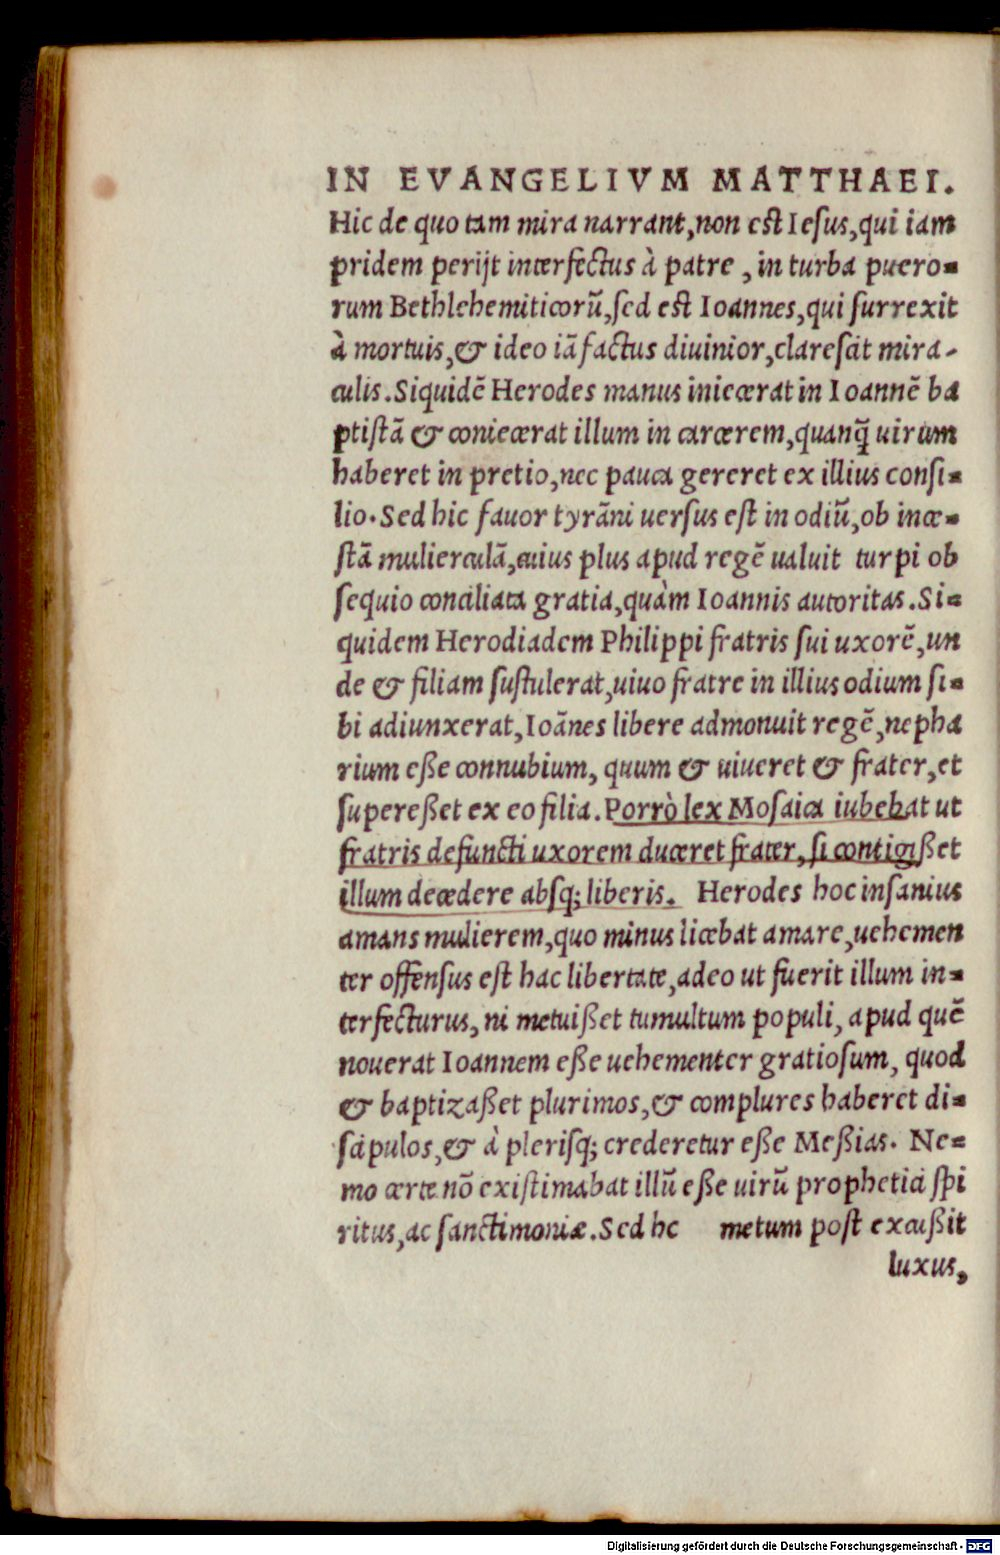 IN EVANGELIVM MATTHAEI.
Hic de quo tam mira narrant, non est Iesus, qui iam
pridem perijt interfectus à patre, in turba puero-
rum Bethlehemiticorũ, sed est Ioannes, qui surrexit
à mortuis, & ideo iã factus diuinior, clarescit mira-
culis. Siquidẽ Herodes manus iniecerat in Ioannẽ ba
ptistã & coniecerat illum in carcerem, quanq̃ uirum
haberet in pretio, nec pauca gereret ex illius consi-
lio. Sed hic fauor tyrãni uersus est in odiũ, ob ince-
stã mulierculã, cuius plus apud regẽ ualuit turpi ob
sequio conciliata gratia, quàm Ioannis autoritas. Si-
quidem Herodiadem Philippi fratris sui uxorẽ, un
de & filiam sustulerat, uiuo fratre in illius odium si-
bi adiunxerat, Ioãnes libere admonuit regẽ, nepha
rium eße connubium, quum & uiueret & frater, et
supereßet ex eo filia. Porrò lex Mosaica iubebat ut
fratris defuncti uxorem duceret frater, si contigißet
illum decedere absq; liberis. Herodes hoc insanius
amans mulierem, quo minus licebat amare, uehemen
ter offensus est hac libertate, adeo ut fuerit illum in-
terfecturus, ni metuißet tumultum populi, apud quẽ
nouerat Ioannem eße uehementer gratiosum, quod
& baptizaßet plurimos, & complures haberet di-
scipulos, & à plerisq; crederetur eße Meßias. Ne-
mo certe nõ existimabat illũ eße uirũ prophetici spi
ritus, ac sanctimoniæ. Sed hc metum post excußit
luxus,
Digitalisierung gefördert durch die Deutsche Forschungsgemeinschaft - DFG